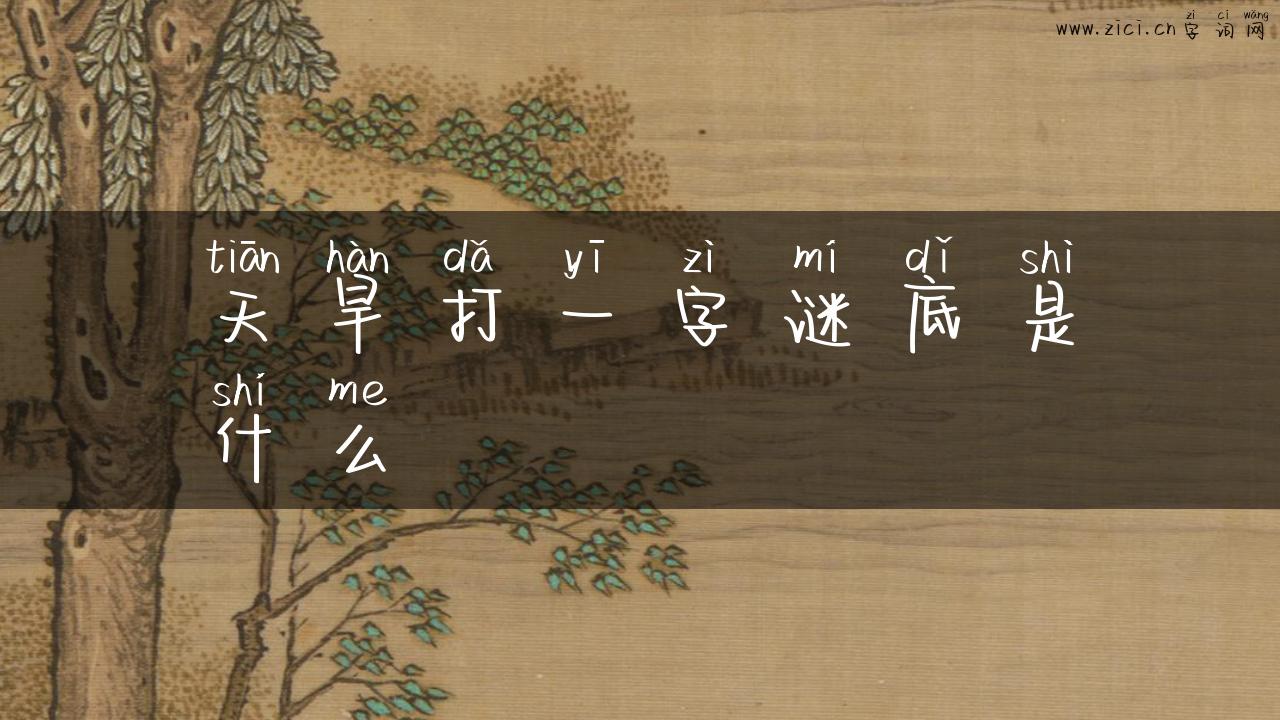 zì cí wǎng
www.zici.cn 字 词 网
tiān hàn dǎ yī zì mí dǐ shì
天 旱 打 一 字 谜 底 是
shí me
什 么